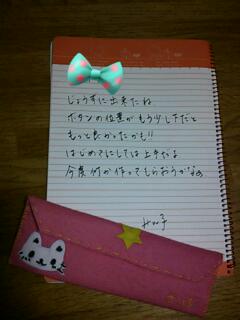 じょうずに出来たね
ボタンの位置がもう少し下だと
もっと良かったかも!!
はじめてにしては上手だよ
今度何か作ってもらおうかなぁ